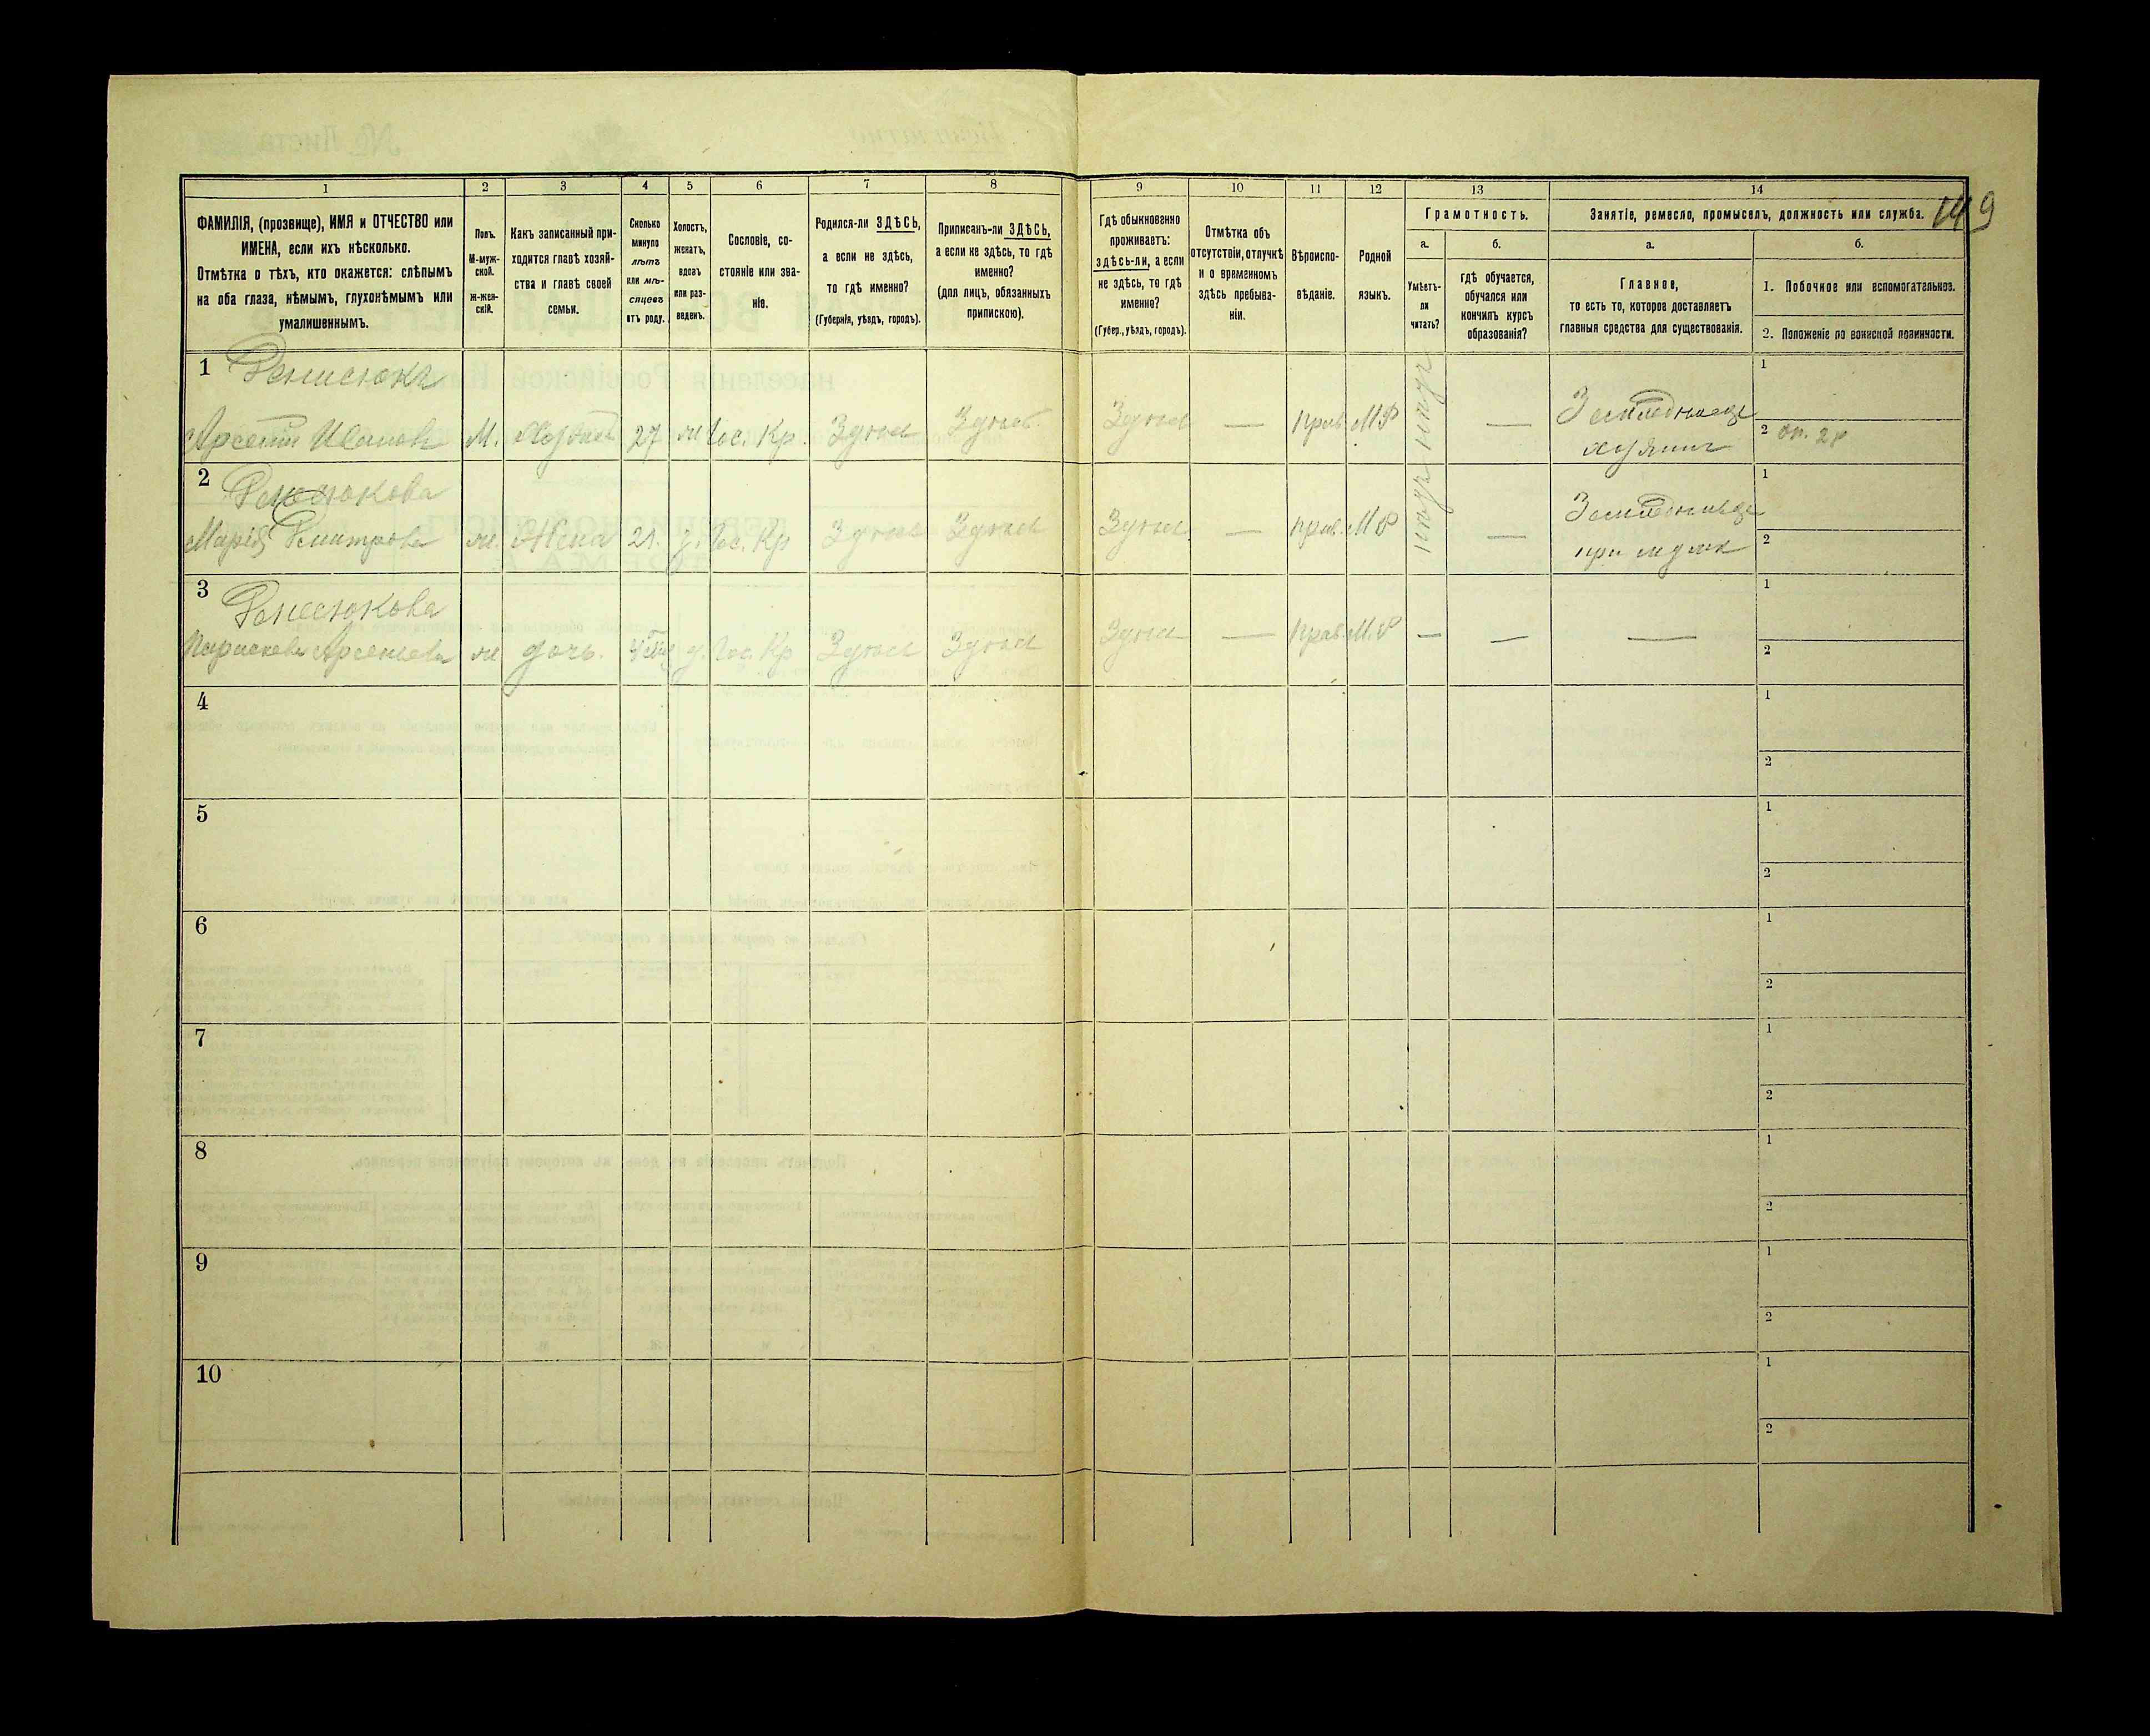 1
2
3
4
5
6
7
8
9
10
11
12
13
14
149
ФАМИЛІЯ, (прозвище), ИМЯ и ОТЧЕСТВО или
ИМЕНА, если ихъ нѣсколько.
Отмѣтка о тѣхъ, кто окажется: слѣпымъ
на оба глаза, нѣмымъ, глухонѣмымъ или
умалишеннымъ.
Полъ.
М-муж-
ской.
Ж-жен-
скій.
Какъ записанный при-
ходится главѣ хозяй-
ства и главѣ своей
семьи.
Сколько
минуло
лѣтъ
или мѣ-
сяцевъ
отъ роду.
Холостъ,
женатъ,
вдовъ
или раз-
веденъ.
Сословіе, со-
стояніе или зва-
ніе.
Родился-ли ЗДѢСЬ,
а если не здѣсь,
то гдѣ именно?
(Губернія, уѣздъ, городъ).
Приписанъ-ли ЗДѢСЬ,
а если не здѣсь, то гдѣ
именно?
(для лицъ, обязанныхъ
припискою).
Гдѣ обыкновенно
проживаетъ:
здѣсь-ли, а если
не здѣсь, то гдѣ
именно?
(Губер., уѣздъ, городъ).
Отмѣтка объ
отсутствіи, отлучкѣ
и о временномъ
здѣсь пребыва-
ніи.
Вѣроиспо-
вѣданіе.
Родной
языкъ.
Грамотность.
а.
Умѣетъ-
ли
читать?
б.
гдѣ обучается,
обучался или
кончилъ курсъ
образованія?
Занятіе, ремесло, промыселъ, должность или служба.
а.
Главное,
то есть то, которое доставляетъ
главныя средства для существованія.
б.
1. Побочное или вспомогательное.
2. Положеніе по воинской повинности.
1 Денисюкъ
Арсентій Ивановъ М. 27 Гос. Кр. Здѣсь Здѣсь Здѣсь — Прав. М.Р — Земледѣлецъ
хозяинъ
1
2
2 Денисюкова
Марія Дмитрова Жена 21. Гос. Кр Здѣсь Здѣсь Здѣсь — Прав. МР — Земледѣлецъ
при мужѣ
1
2
3 Денисюкова
Параскева Арсеньева дочь. Гос. Кр Здѣсь Здѣсь Здѣсь — Прав. М.Р — — —
1
2
4
1
2
5
1
2
6
1
2
7
1
2
8
1
2
9
1
2
10
1
2